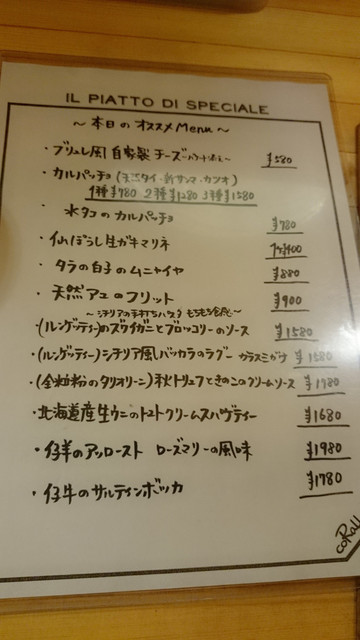 IL PIATTO DI SPECIALE
～本日のオススメMenu～
・ブリュレ風 自家製 チーズ ¥580
・カルパッチョ(天然タイ・新サンマ・カツオ)
1種¥780 2種¥1280 3種¥1580
・水タコのカルパッチョ ¥780
・仙ぽうし生ガキマリネ 1ヶ¥400
・タラの白子のムニャイヤ ¥880
・天然アユのフリット ¥900
～シチリアの手打ちパスタ もちもち食感～
・(ルンゲッティー)のズワイガニとブロッコリーのソース ¥1580
・(ルンゲッティー)シチリア風バッカラのラグー カラスミがけ ¥1580
・(全粒粉のタリオリーニ)秋トリュフときのこのクリームソース ¥1780
・北海道産生ウニのトマトクリームスパゲティー ¥1680
・仔羊のアッロースト ローズマリーの風味 ¥1980
・仔牛のサルティンボッカ ¥1780